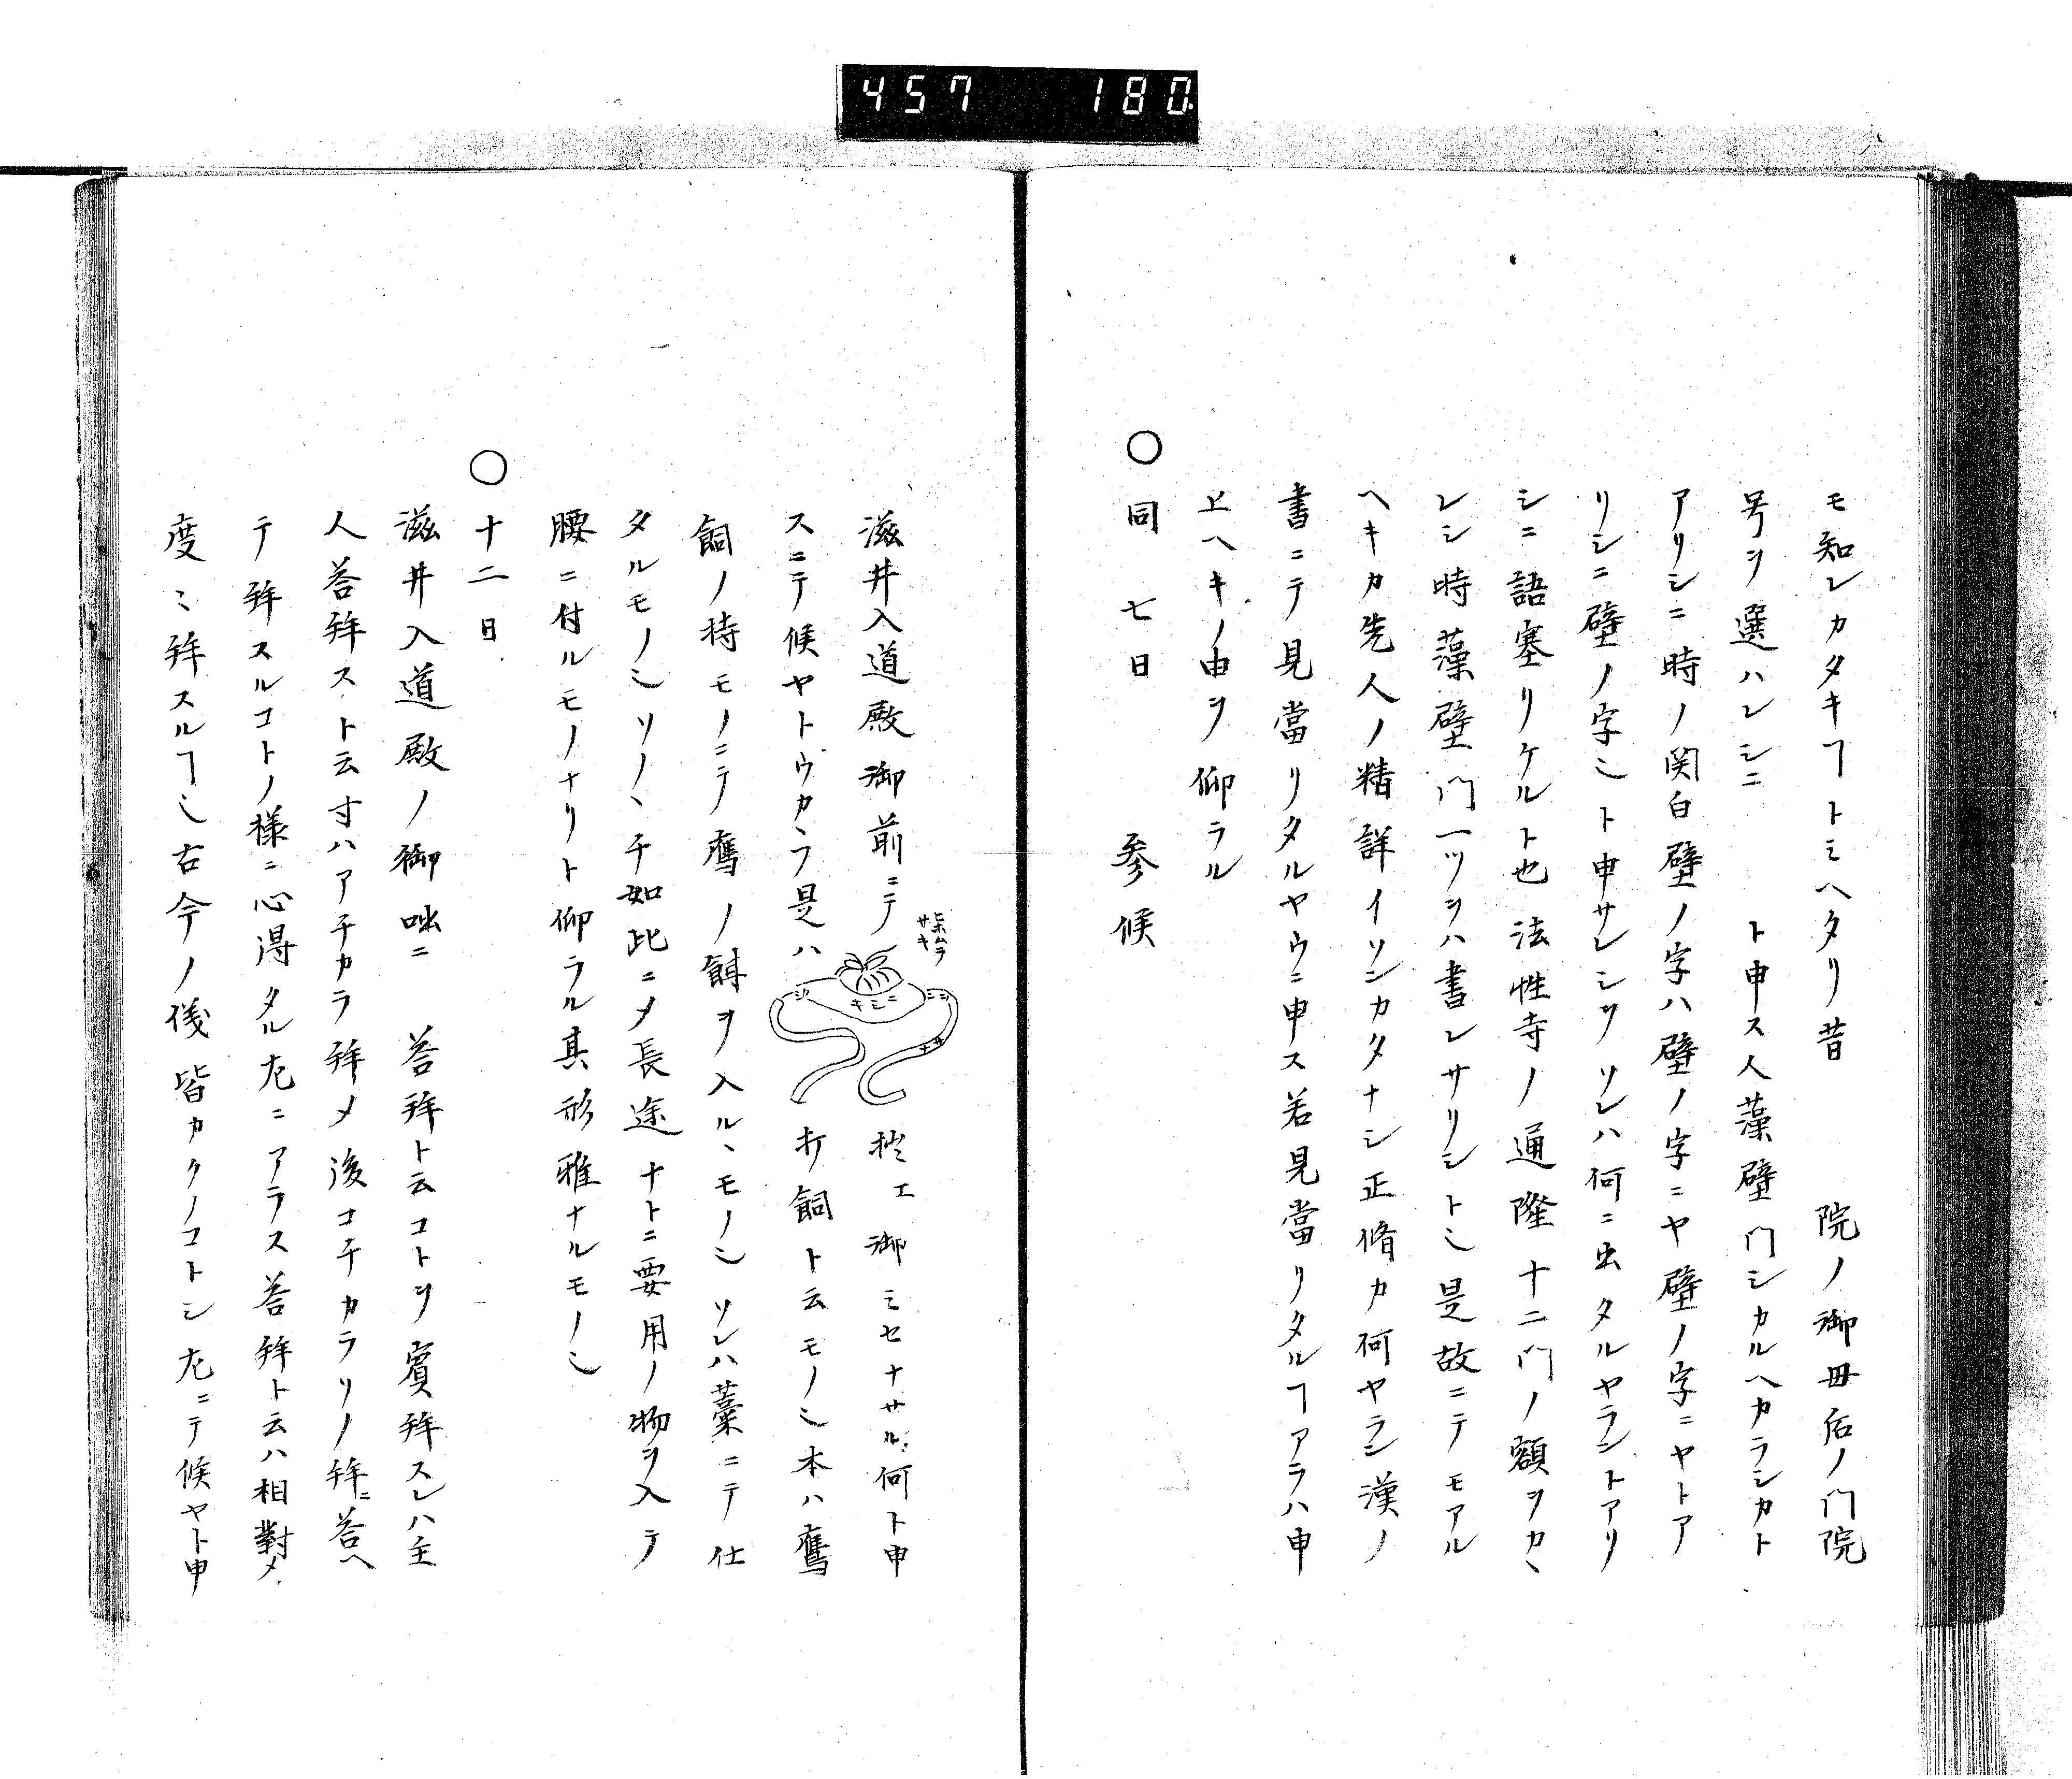 457 180
モ知レカタキヿトミヘタリ昔　院ノ御母后ノ門院
号ヲ選ハレシニ　ト申ス人藻壁門シカルヘカラシカト
アリシニ時ノ関白壁ノ字ハ壁ノ字ニヤ壁ノ字ニヤトア
リシニ壁ノ字ミト申サレシヲソレハ何ニ出タルヤラントアリ
シニ語塞リケルト也法性寺ノ通隆十二門ノ額ヲカヽ
レシ時藻壁門一ツヲハ書レサリシトミ是故ニテモアル
ヘキカ先人ノ精詳イソシカタナシ正脩カ何ヤラン漢ノ
書ニテ見當リタルヤウニ申ス若見當リタルヿアラハ申
上ヘキノ由ヲ仰ラル
○同七日　参候
滋井入道殿御前ニテ
紫ムラサキ
キミニ
拙エ御ミセナサル何ト申
スニテ候ヤトウカヽフ是ハ
打飼ト云モノミ本ハ鷹
飼ノ持モノニテ鷹ノ餌ヲ入ルヽモノミソレハ藁ニテ仕
タルモノミソノヽチ如此ニメ長途ナトニ要用ノ物ヲ入テ
腰ニ付ルモノナリト仰ラル其形雅ナルモノミ
○十二日
滋井入道殿ノ御咄ニ　答拜ト云コトヲ賓拜スレハ主
人答拜スト云寸ハアチカラ拜メ後コチカラソノ拜ニ答ヘ
テ拜スルコトノ様ニ心得タル尤ニアラス答拜ト云ハ相對メ
度ミ拜スルヿミ古今ノ儀皆カクノコトシ尤ニテ候ヤト申